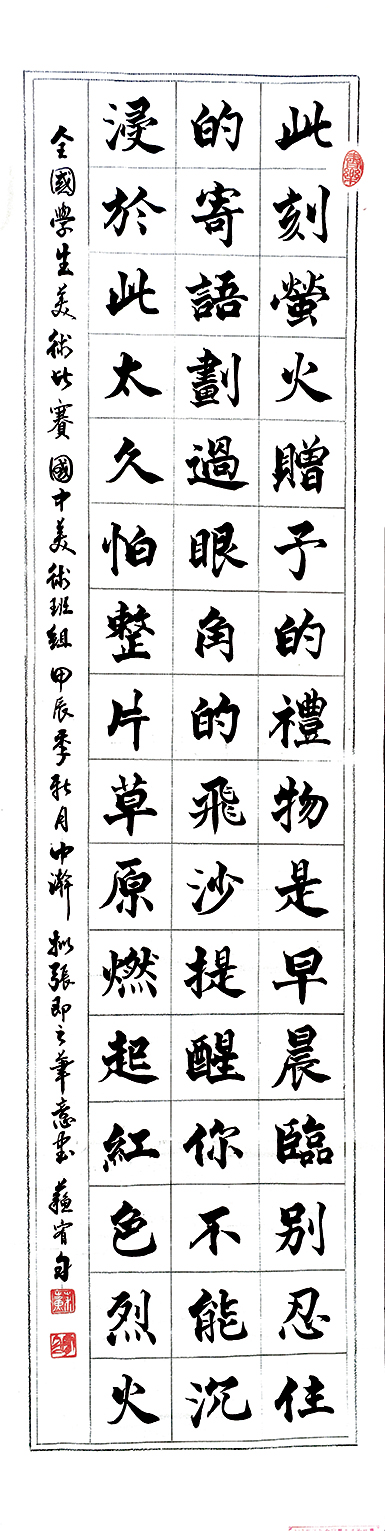 此刻螢火贈予的禮物是早晨臨別忍住
的寄語劃過眼角的飛沙提醒你不能沉
浸於此太久怕整片草原燃起紅色烈火
全國學生美術比賽國中美術班組甲辰季秋月 擬張即之筆意書 蘇宥